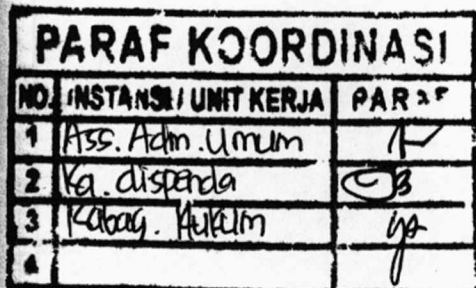 PARAF KOORDINASI
NO. INSTANSI / UNIT KERJA PARAF
1 Ass. Adm. Umum
2 Ka. dispenda
3 Kabag. Hukum
4